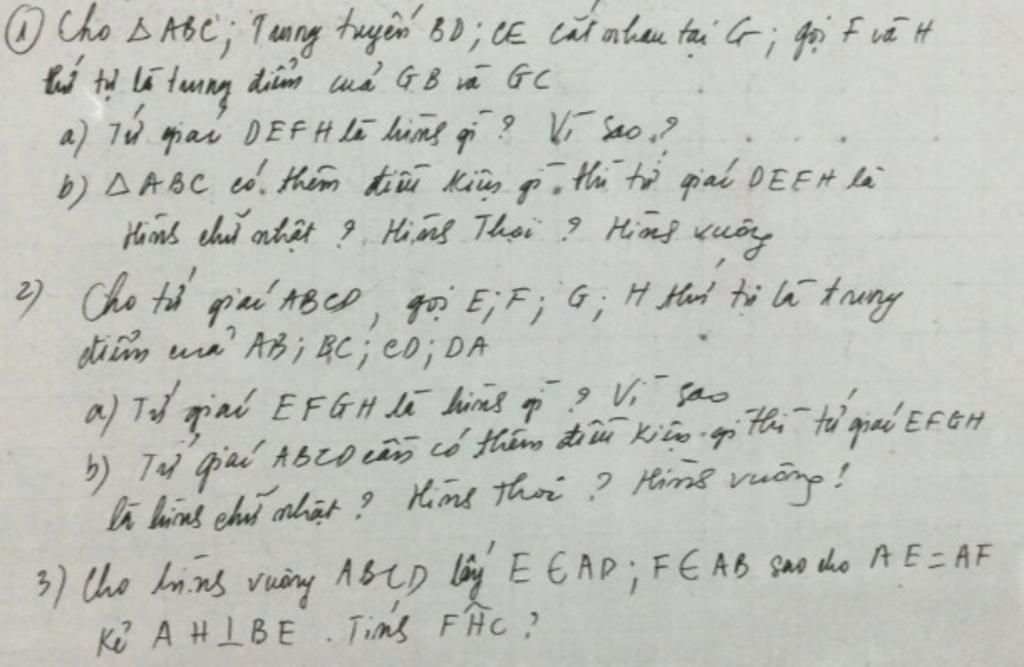 ① Cho △ABC; Trung tuyến BD; CE cắt nhau tại G; gọi F và H
thứ tự là trung điểm của GB và GC
a) Tứ giác DEFH là hình gì? Vì sao?
b) △ABC có thêm điều kiện gì thì tứ giác DEFH là
Hình chữ nhật? Hình Thoi? Hình vuông
2) Cho tứ giác ABCD, gọi E; F; G; H thứ tự là trung
điểm của AB; BC; CD; DA
a) Tứ giác EFGH là hình gì? Vì sao
b) Tứ giác ABCD cần có thêm điều kiện gì thì tứ giác EFGH
là hình chữ nhật? Hình thoi? Hình vuông!
3) Cho hình vuông ABCD lấy E ∈ AD; F ∈ AB sao cho AE = AF
Kẻ AH ⊥ BE. Tính FĤC?